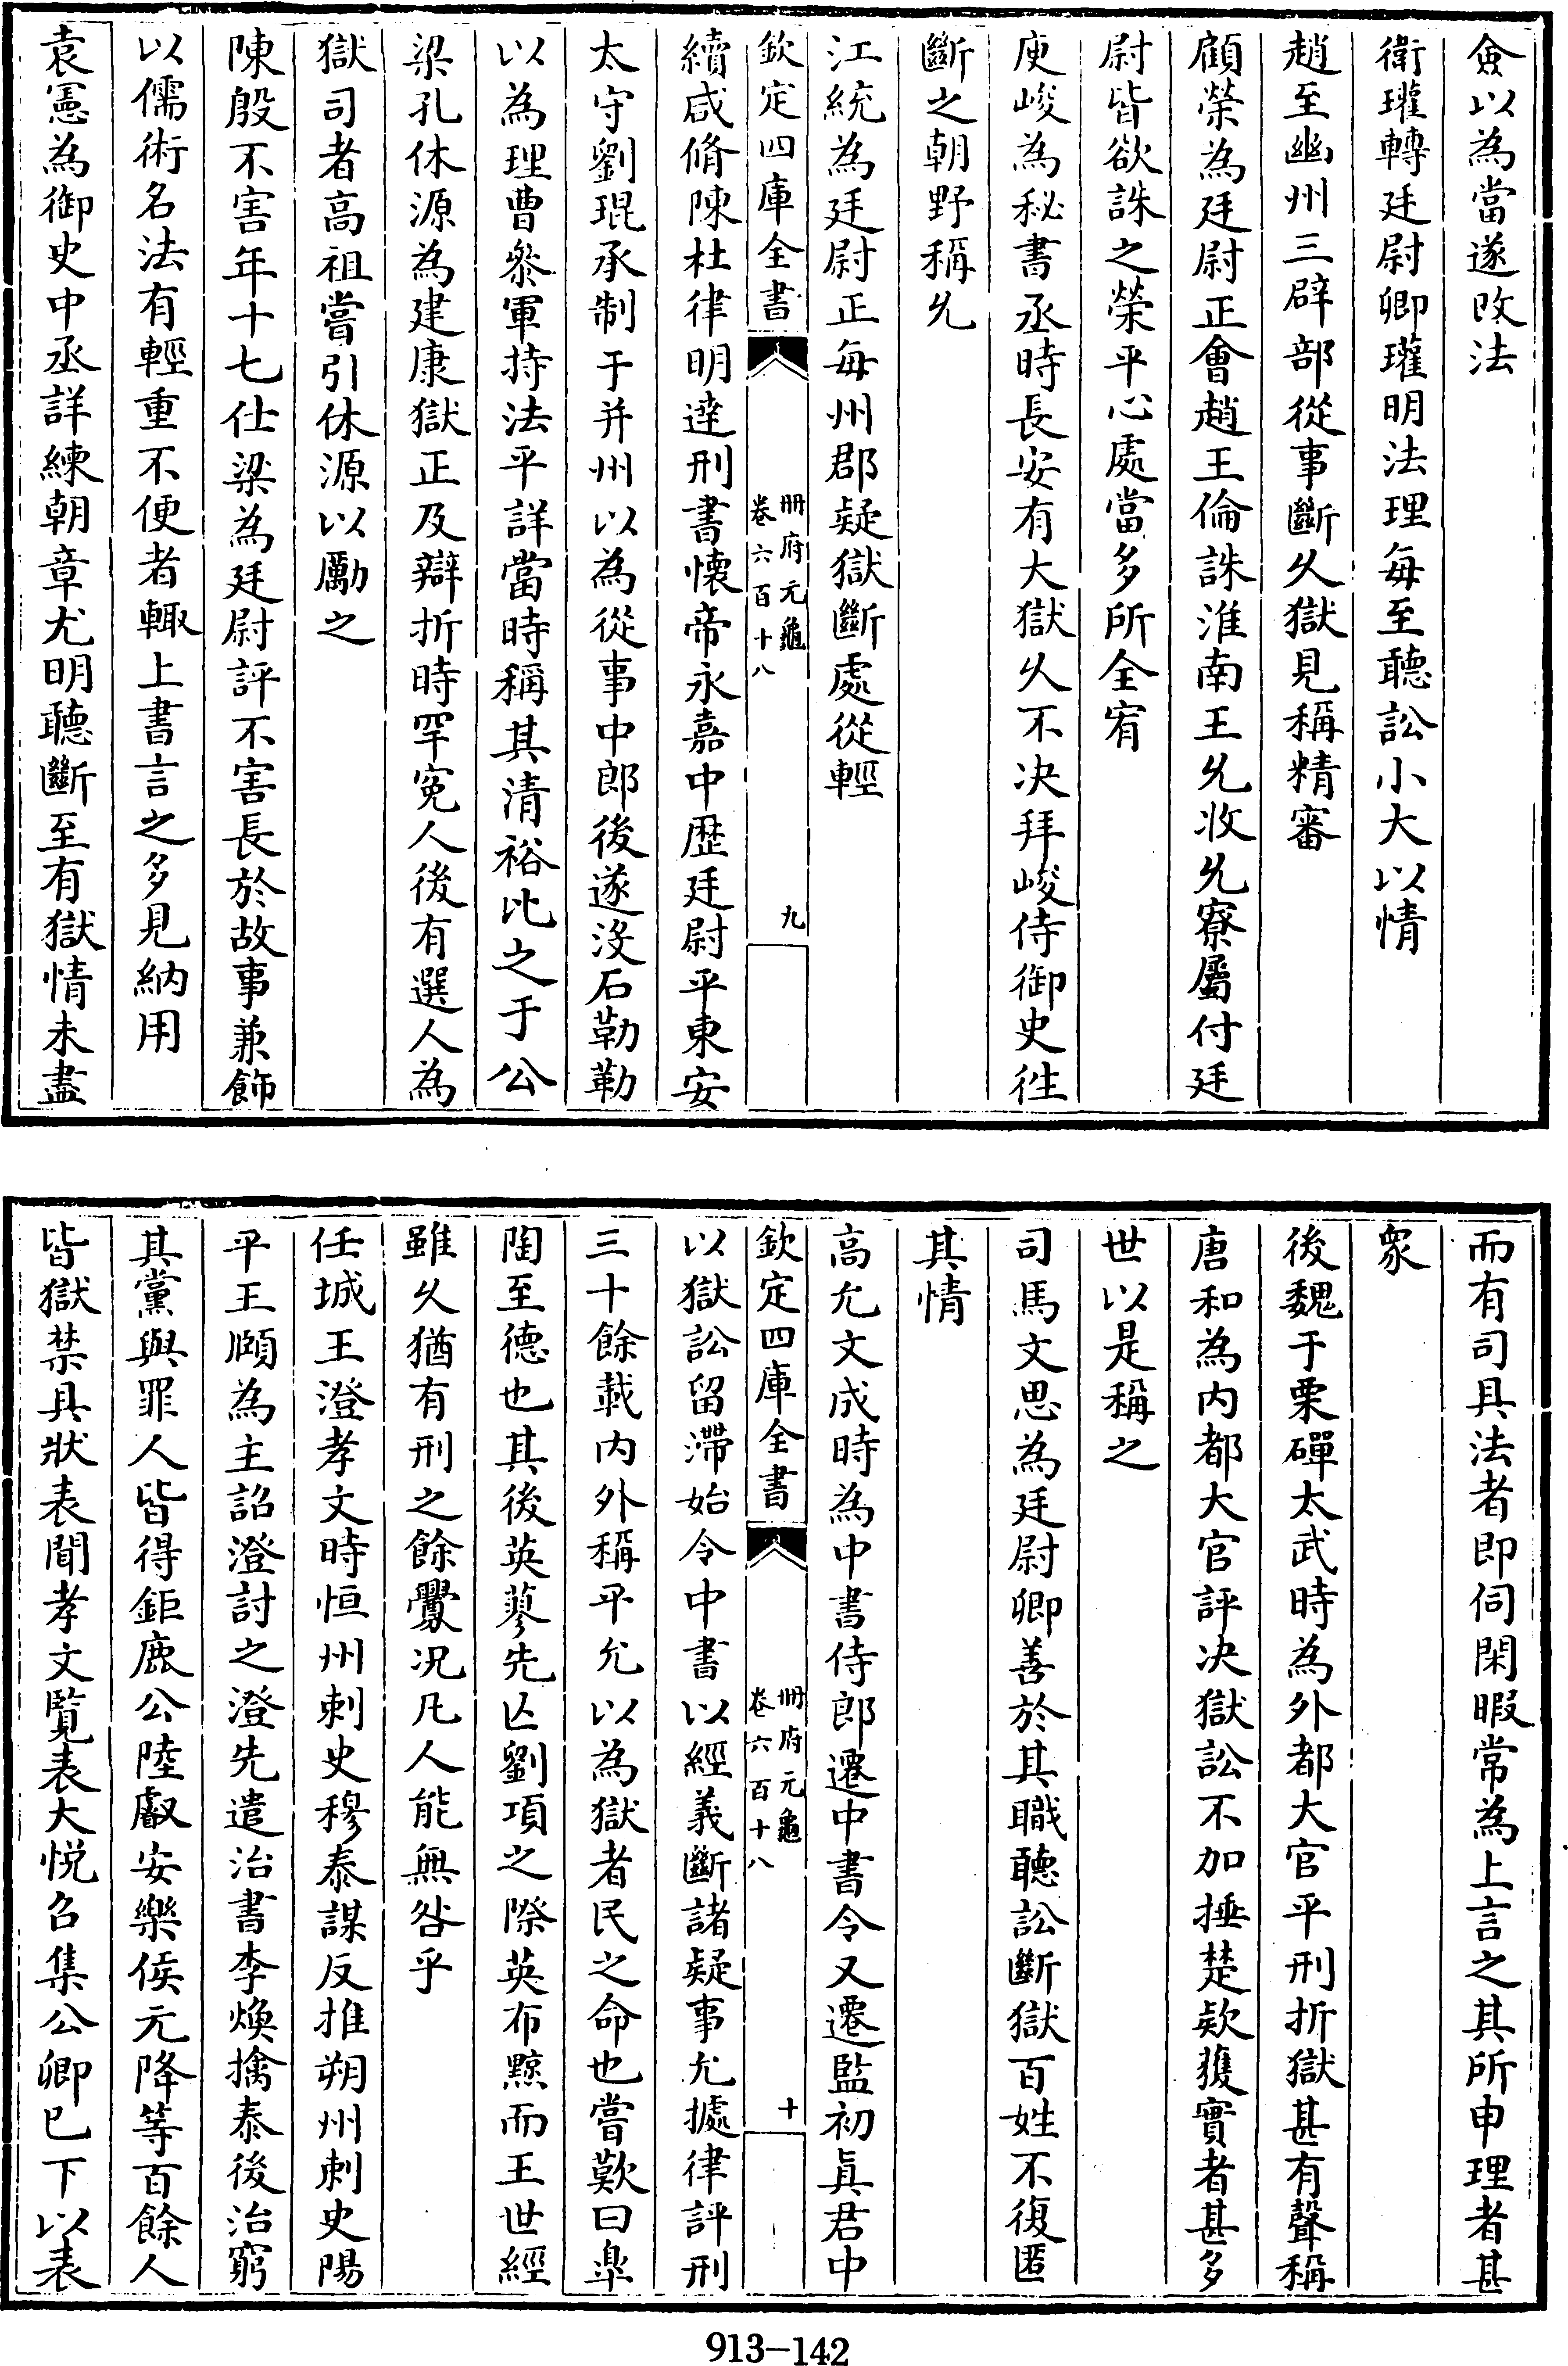 僉以為當遂改法
衛瓘轉廷尉卿瓘明法理每至聽訟小大以情
趙至幽州三辟部從事斷久獄見稱精審
顧榮為廷尉正會趙王倫誅淮南王允收允寮屬付廷
尉皆欲誅之榮平心處當多所全宥
庾峻為秘書丞時長安有大獄久不决拜峻侍御史徃
斷之朝野稱允
江統為廷尉正每州郡疑獄斷處從輕
欽定四庫全書
冊府元龜
卷六百十八
九
續咸脩陳杜律明達刑書懷帝永嘉中歷廷尉平東安
太守劉琨承制于并州以為從事中郎後遂沒石勒勒
以為理曹叅軍持法平詳當時稱其清裕比之于公
梁孔休源為建康獄正及辯折時罕寃人後有選人為
獄司者高祖嘗引休源以勵之
陳殷不害年十七仕梁為廷尉評不害長於故事兼飾
以儒術名法有輕重不便者輙上書言之多見納用
袁憲為御史中丞詳練朝章尤明聽斷至有獄情未盡
而有司具法者即伺閑暇常為上言之其所申理者甚
衆
後魏于栗磾太武時為外都大官平刑折獄甚有聲稱
唐和為内都大官評决獄訟不加捶楚欵獲實者甚多
世以是稱之
司馬文思為廷尉卿善於其職聽訟斷獄百姓不復匿
其情
高允文成時為中書侍郎遷中書令又遷監初真君中
欽定四庫全書
冊府元龜
卷六百十八
十
以獄訟留滯始令中書以經義斷諸疑事允據律評刑
三十餘載内外稱平允以為獄者民之命也嘗歎曰臯
陶至德也其後英蓼先亾劉項之際英布黥而王世經
雖久猶有刑之餘釁况凡人能無咎乎
任城王澄孝文時恒州刺史穆泰謀反推朔州刺史陽
平王頤為主詔澄討之澄先遣治書李煥擒泰後治窮
其黨與罪人皆得鉅鹿公陸叡安樂侯元降等百餘人
皆獄禁具狀表聞孝文覧表大悅召集公卿已下以表
913-142